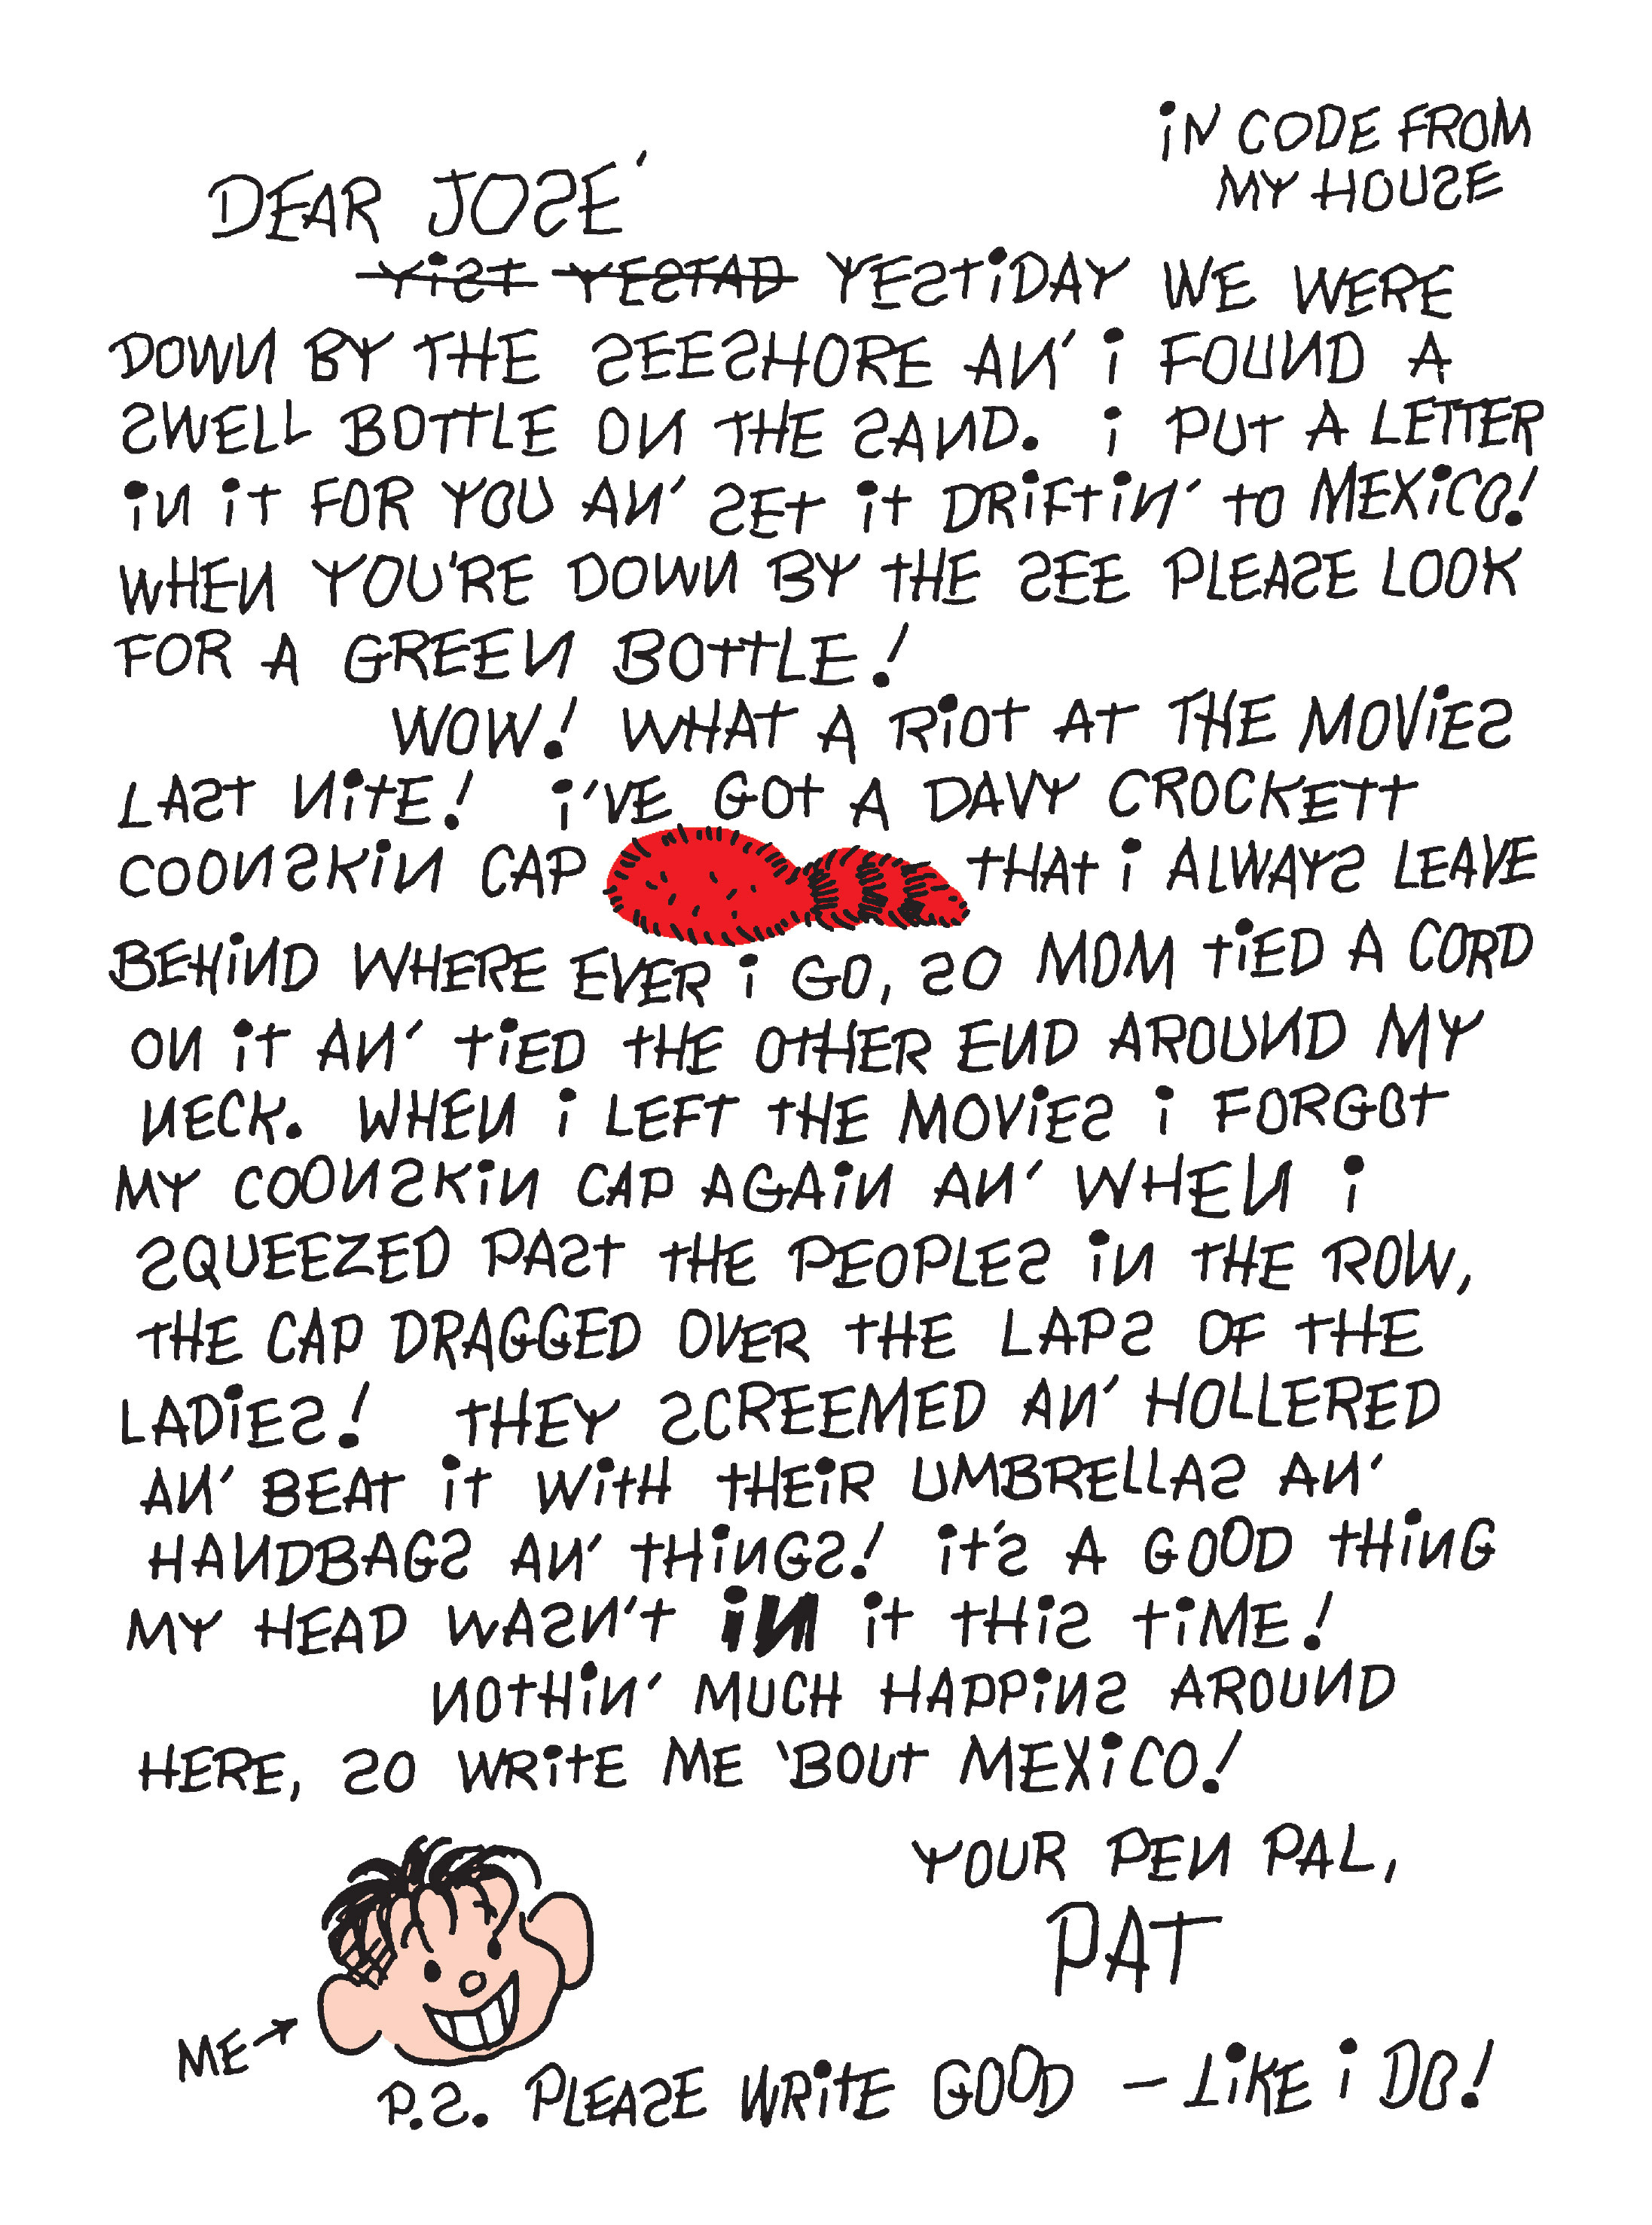 iN CODE FROM
MY HOUSE
DEAR JOSE'
YiST YESTAD YESTiDAY WE WERE
DOWN BY THE SEESHORE AN' i FOUND A
SWELL BOTTLE ON THE SAND. i PUT A LETTER
iN iT FOR YOU AN' SET iT DRiFTiN' TO MEXiCO!
WHEN YOU'RE DOWN BY THE SEE PLEASE LOOK
FOR A GREEN BOTTLE!
WOW! WHAT A RiOT AT THE MOViES
LAST NiTE! i'VE GOT A DAVY CROCKETT
COONSKiN CAP THAT i ALWAYS LEAVE
BEHiND WHERE EVER i GO, SO MOM TiED A CORD
ON iT AN' TiED THE OTHER END AROUND MY
NECK. WHEN i LEFT THE MOViES i FORGOT
MY COONSKiN CAP AGAiN AN' WHEN i
SQUEEZED PAST THE PEOPLES iN THE ROW,
THE CAP DRAGGED OVER THE LAPS OF THE
LADiES! THEY SCREEMED AN' HOLLERED
AN' BEAT iT WiTH THEiR UMBRELLAS AN'
HANDBAGS AN' THiNGS! iT'S A GOOD THiNG
MY HEAD WASN'T iN iT THiS TiME!
NOTHiN' MUCH HAPPiNS AROUND
HERE, SO WRiTE ME 'BOUT MEXiCO!
YOUR PEN PAL,
PAT
ME
P.S. PLEASE WRiTE GOOD – LiKE i DO!